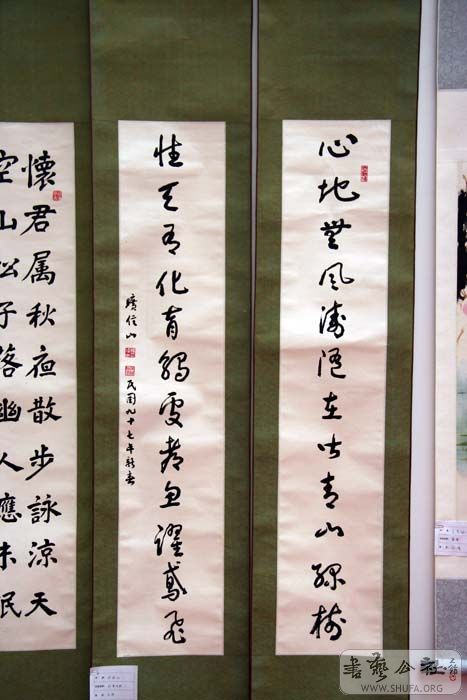 心地無風濤隨在皆青山綠樹
性天有化育觸處都魚躍鳶飛
民國九十七年新春
懷君属秋夜散步詠涼天
空山松子落幽人應未眠
書藝公社
WWW.SHUFA.ORG